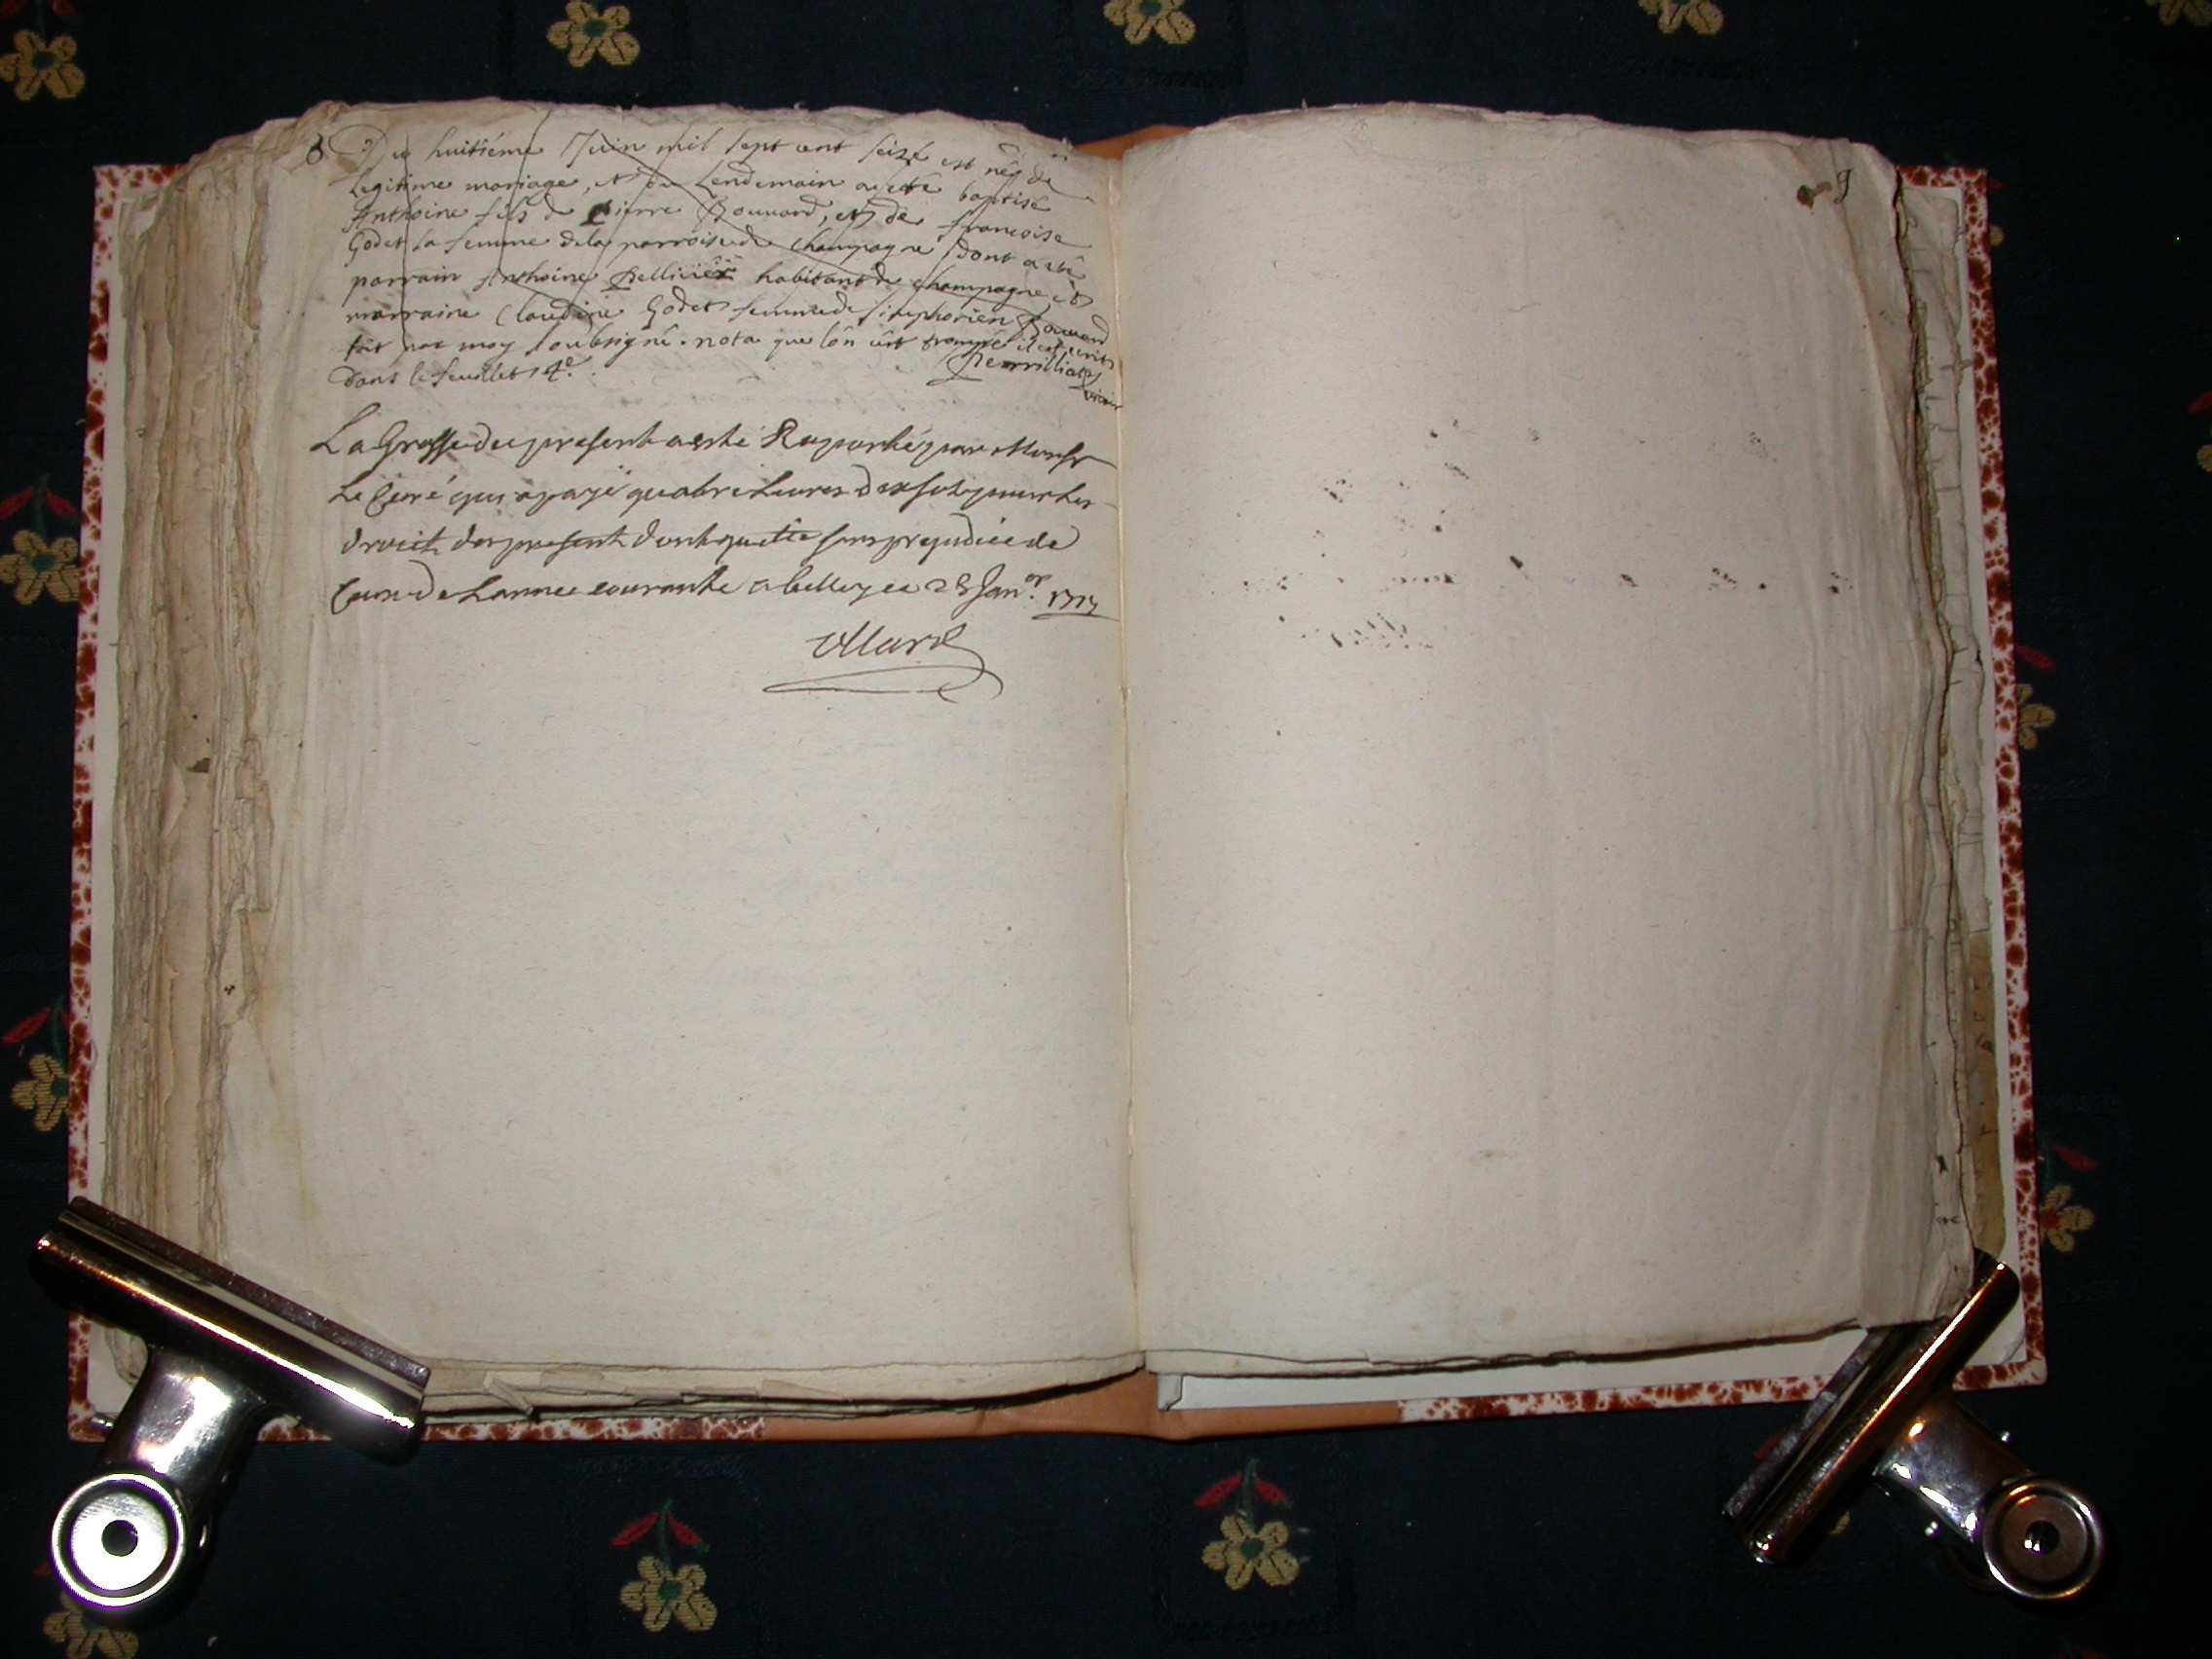 8 Du huitiéme Juin mil sept cent seize est né de
legitime mariage, et le Lendemain a eté baptisé
Anthoine fils de pierre Bouvard, et de francoise
Godet sa femme de la parroise de champagne dont a eté
parrain Anthoine pellicier habitant de champagne, et
marraine Claudine Godet femme de simphorien Bouvard
fait par moy soubsigné. nota que lôn êst trompé il est ecrit
dans le feuillet 4e.
vicaire
La Grosse du present a esté Raporté par Monsr
Le Curé qui a payé quatre Livres dix sols pour les
droits des present dont quitte sans prejudice de
Ceux de Lannee courante a belley ce 28 Janer. 1717
9